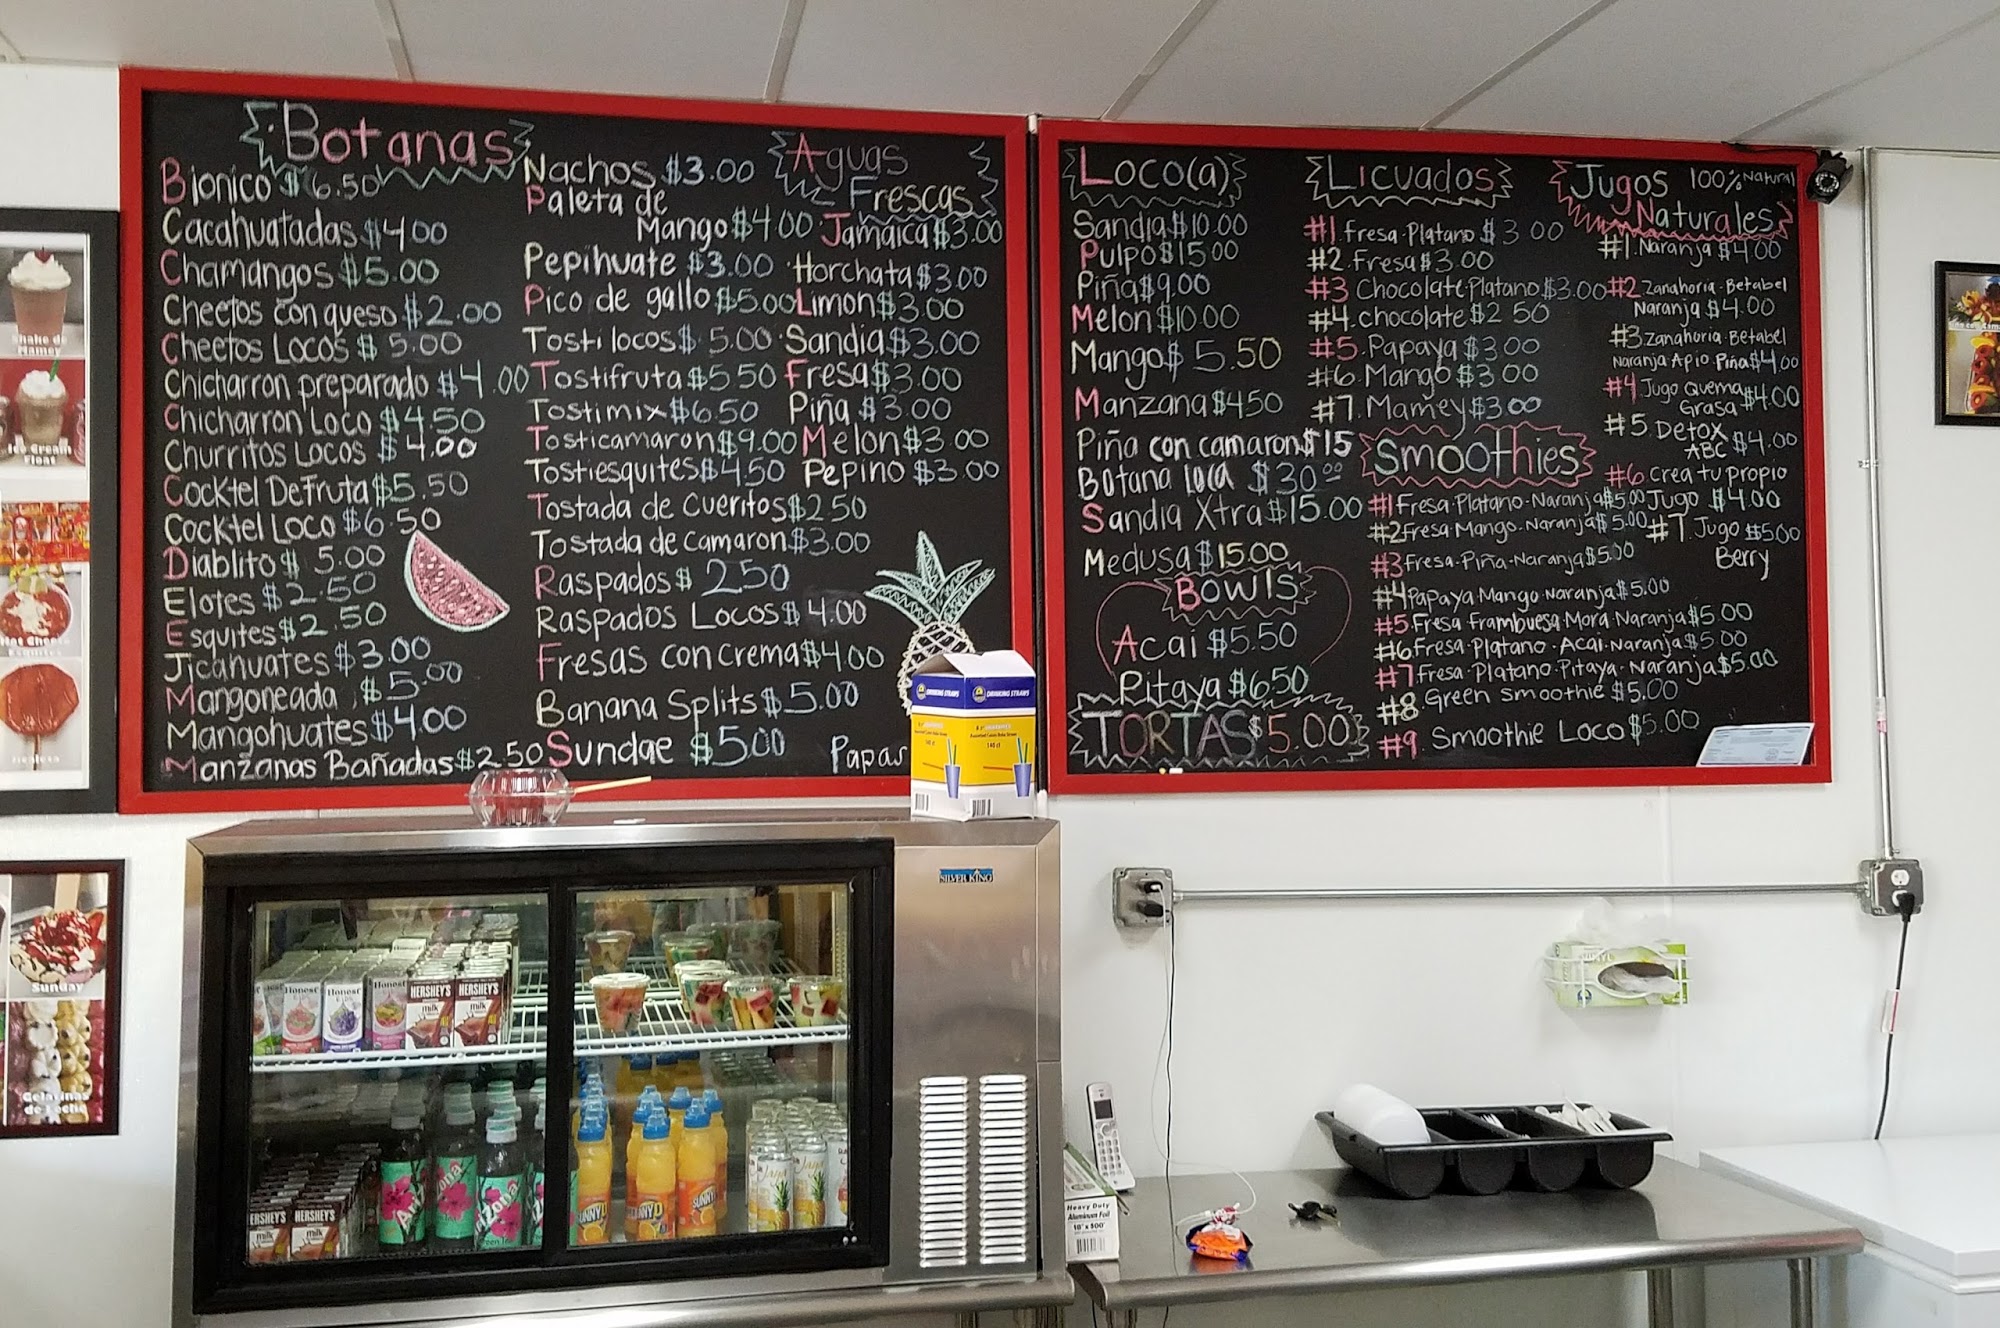 Botanas
Bionico $6.50
Cacahuatadas $4.00
Chamangos $5.00
Cheetos con queso $2.00
Cheetos Locos $5.00
Chicharron preparado $4.00
Chicharron Loco $4.50
Churritos Locos $4.00
Cocktel De Fruta $5.50
Cocktel Loco $6.50
Diablito $5.00
Elotes $2.50
Esquites $2.50
Jicahuates $3.00
Mangoneada $5.00
Mangohuates $4.00
Manzanas Bañadas $2.50
Nachos $3.00
Paleta de
Mango $4.00
Pepihuate $3.00
Pico de gallo $5.00
Tosti locos $5.00
Tostifruta $5.50
Tostimix $6.50
Tosticamaron $9.00
Tostiesquites $4.50
Tostada de Cueritos $2.50
Tostada de camaron $3.00
Raspados $2.50
Raspados Locos $4.00
Fresas con crema $4.00
Banana Splits $5.00
Sundae $5.00
Papas
Aguas
Frescas
Jamaica $3.00
Horchata $3.00
Limon $3.00
Sandia $3.00
Fresa $3.00
Piña $3.00
Melon $3.00
Pepino $3.00
Loco(a)
Sandia $10.00
Pulpo $15.00
Piña $9.00
Melon $10.00
Mango $5.50
Manzana $4.50
Piña con camaron $15
Botana loca $30.00
Sandia Xtra $15.00
Medusa $15.00
Bowls
Acai $5.50
Pitaya $6.50
TORTAS $5.00
Licuados
#1 Fresa-Platano $3.00
#2 Fresa $3.00
#3 Chocolate Platano $3.00
#4 Chocolate $2.50
#5 Papaya $3.00
#6 Mango $3.00
#7 Mamey $3.00
Smoothies
#1 Fresa-Platano-Naranja $5.00
#2 Fresa-Mango-Naranja $5.00
#3 Fresa-Piña-Naranja $5.00
#4 Papaya Mango Naranja $5.00
#5 Fresa Frambuesa Mora Naranja $5.00
#6 Fresa-Platano-Acai-Naranja $5.00
#7 Fresa-Platano-Pitaya-Naranja $5.00
#8 Green Smoothie $5.00
#9 Smoothie Loco $5.00
Jugos 100% Natural
Naturales
#1 Naranja $4.00
#2 Zanahoria-Betabel
Naranja $4.00
#3 Zanahoria-Betabel
Naranja-Apio Piña $4.00
#4 Jugo Quema
Grasa $4.00
#5 Detox
ABC $4.00
#6 Crea tu propio
Jugo $4.00
#7 Jugo $5.00
Berry
Shake de
Mamey
Ice Cream
Float
Sunday
Gelatinas
de Leche
DRINKING STRAWS
DRINKING STRAWS
SILVER KING
Honest
Honest
Honest
HERSHEY'S
HERSHEY'S
milk
milk
HERSHEY'S
HERSHEY'S
milk
milk
SUNNYD
SUNNYD
Heavy Duty
Aluminum Foil
18" x 500'